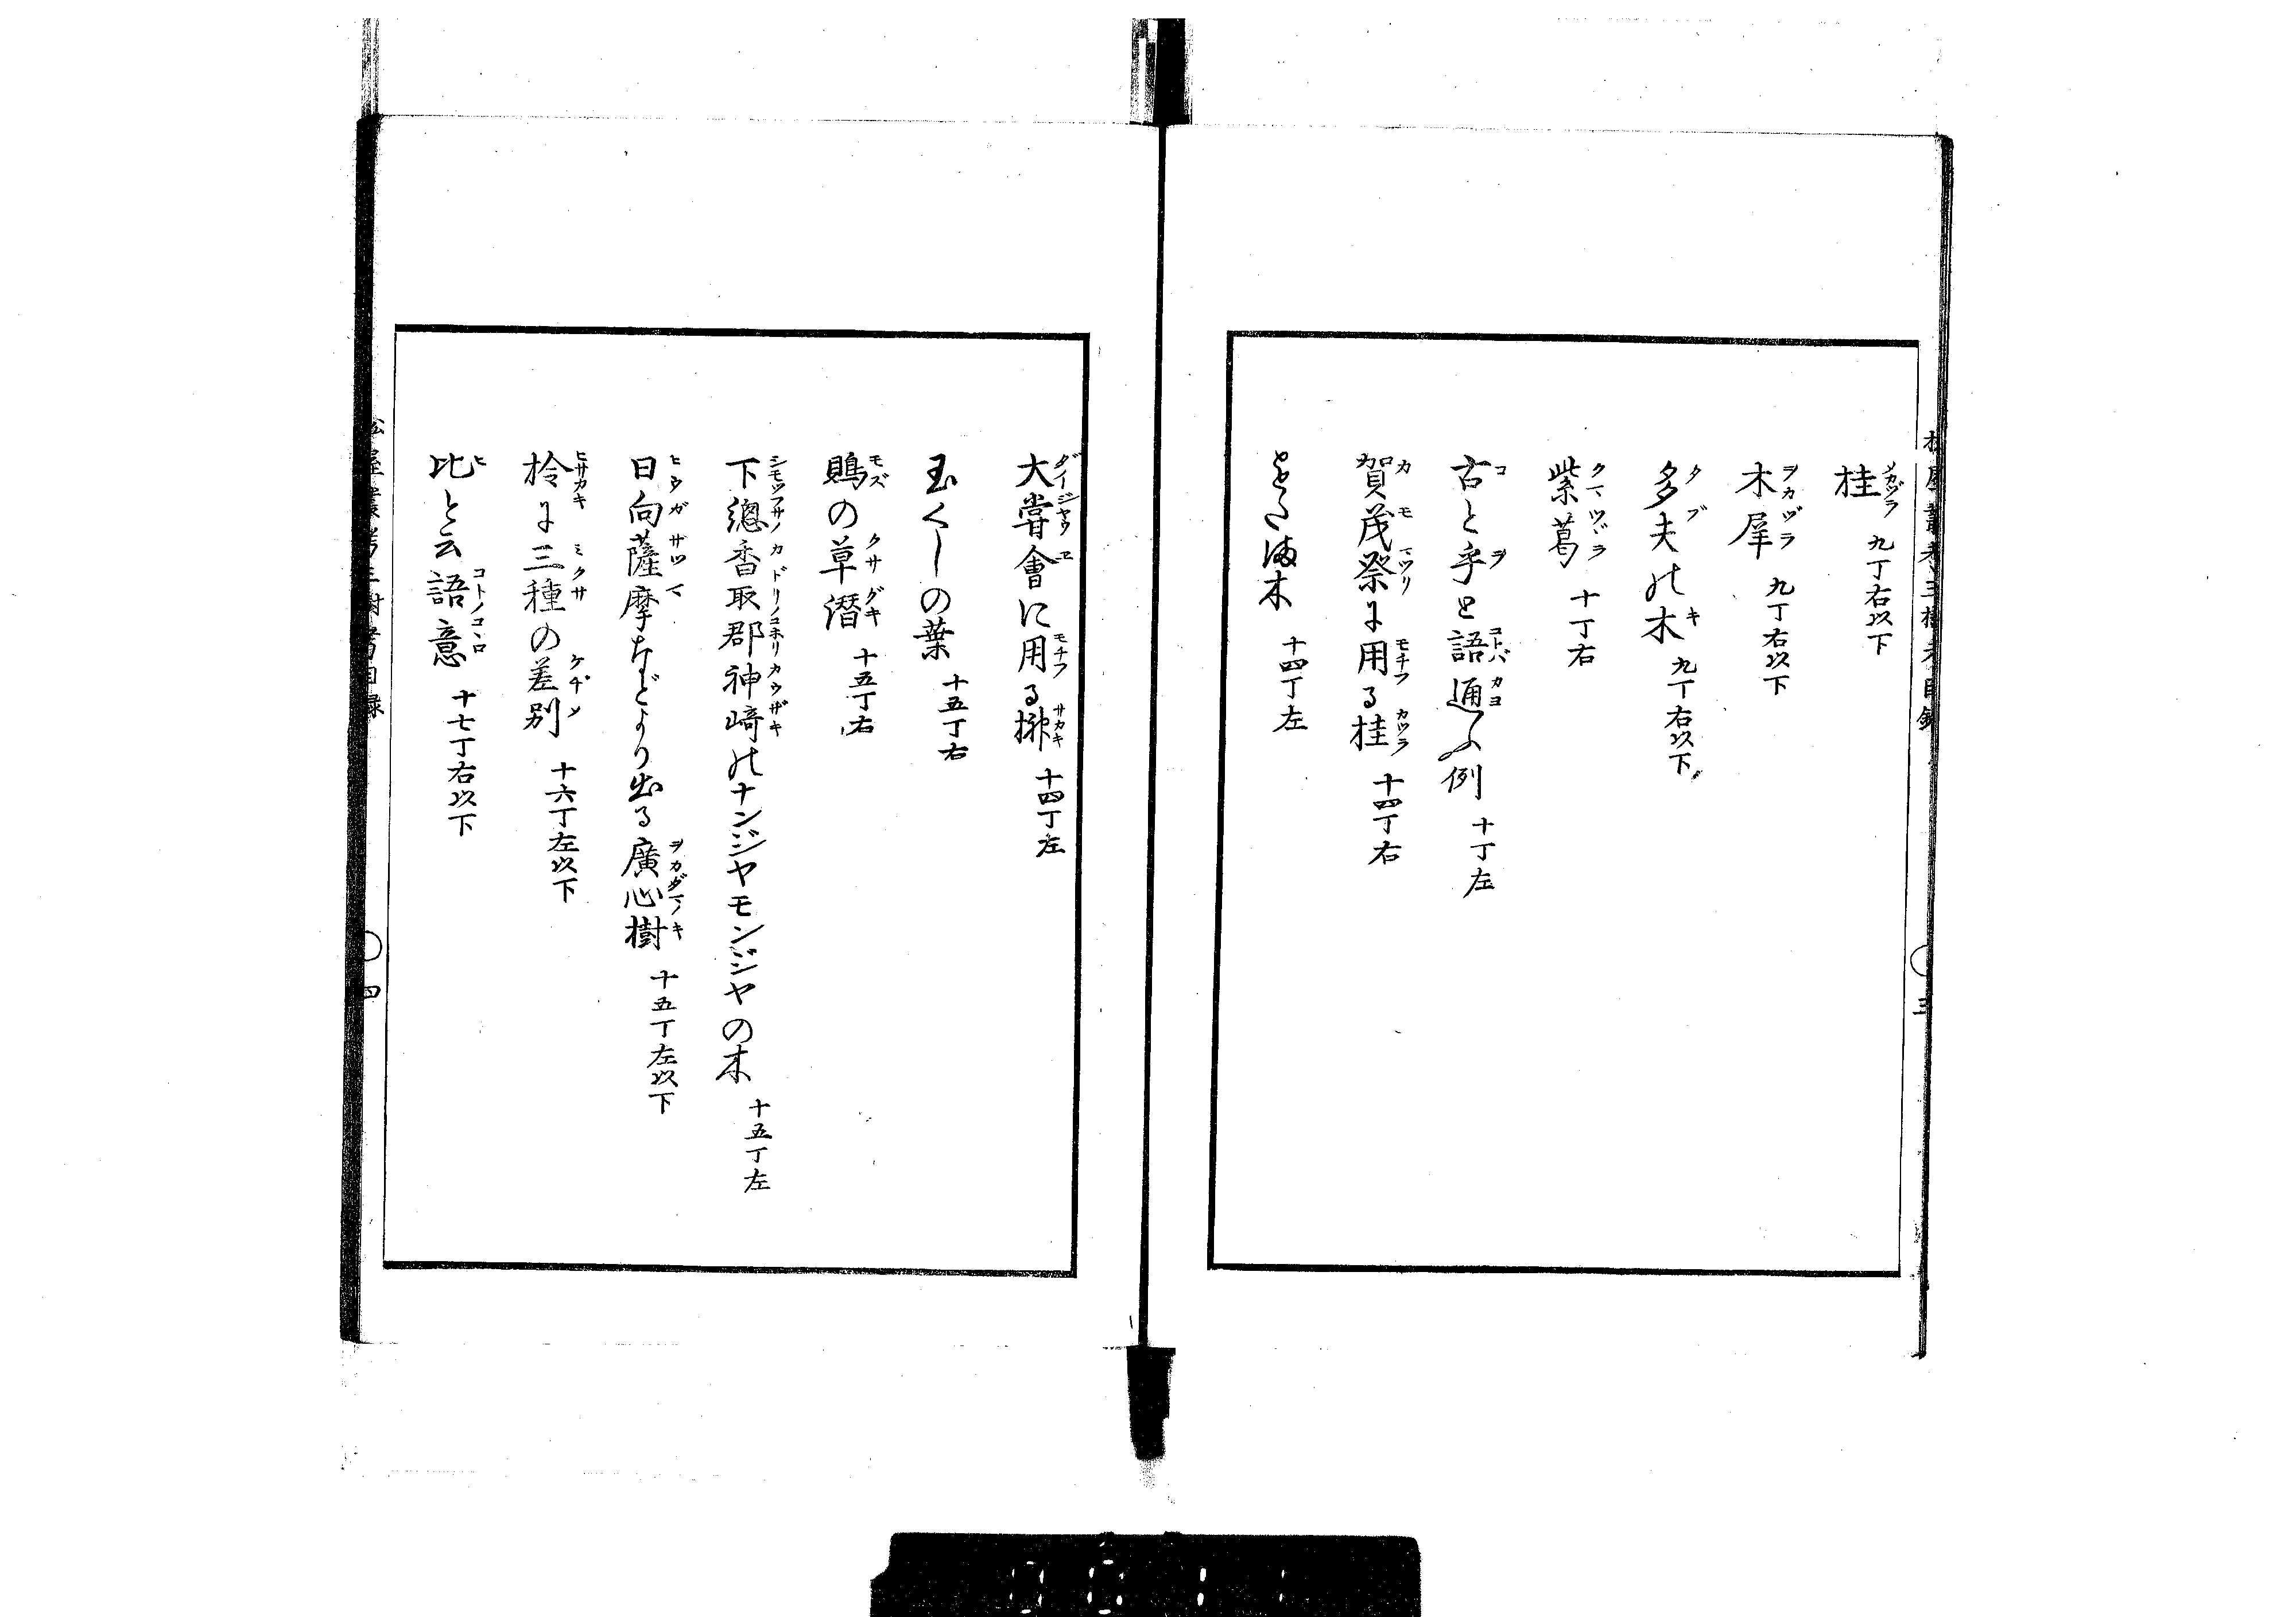 桂 九丁右以下
木犀 九丁右以下
多夫の木 九丁右以下
紫葛 十丁右
古と乎と語通ふ例 十丁左
賀茂祭に用る桂 十四丁右
木 十四丁左
大嘗會に用る榊 十四丁左
玉くしの葉 十五丁右
鵙の草潛 十五丁右
下總香取郡神﨑のナンジヤモンジヤの木 十五丁左
日向薩摩などより出る廣心樹 十五丁左以下
柃に三種の差別 十六丁左以下
比と云語意 十七丁右以下
四